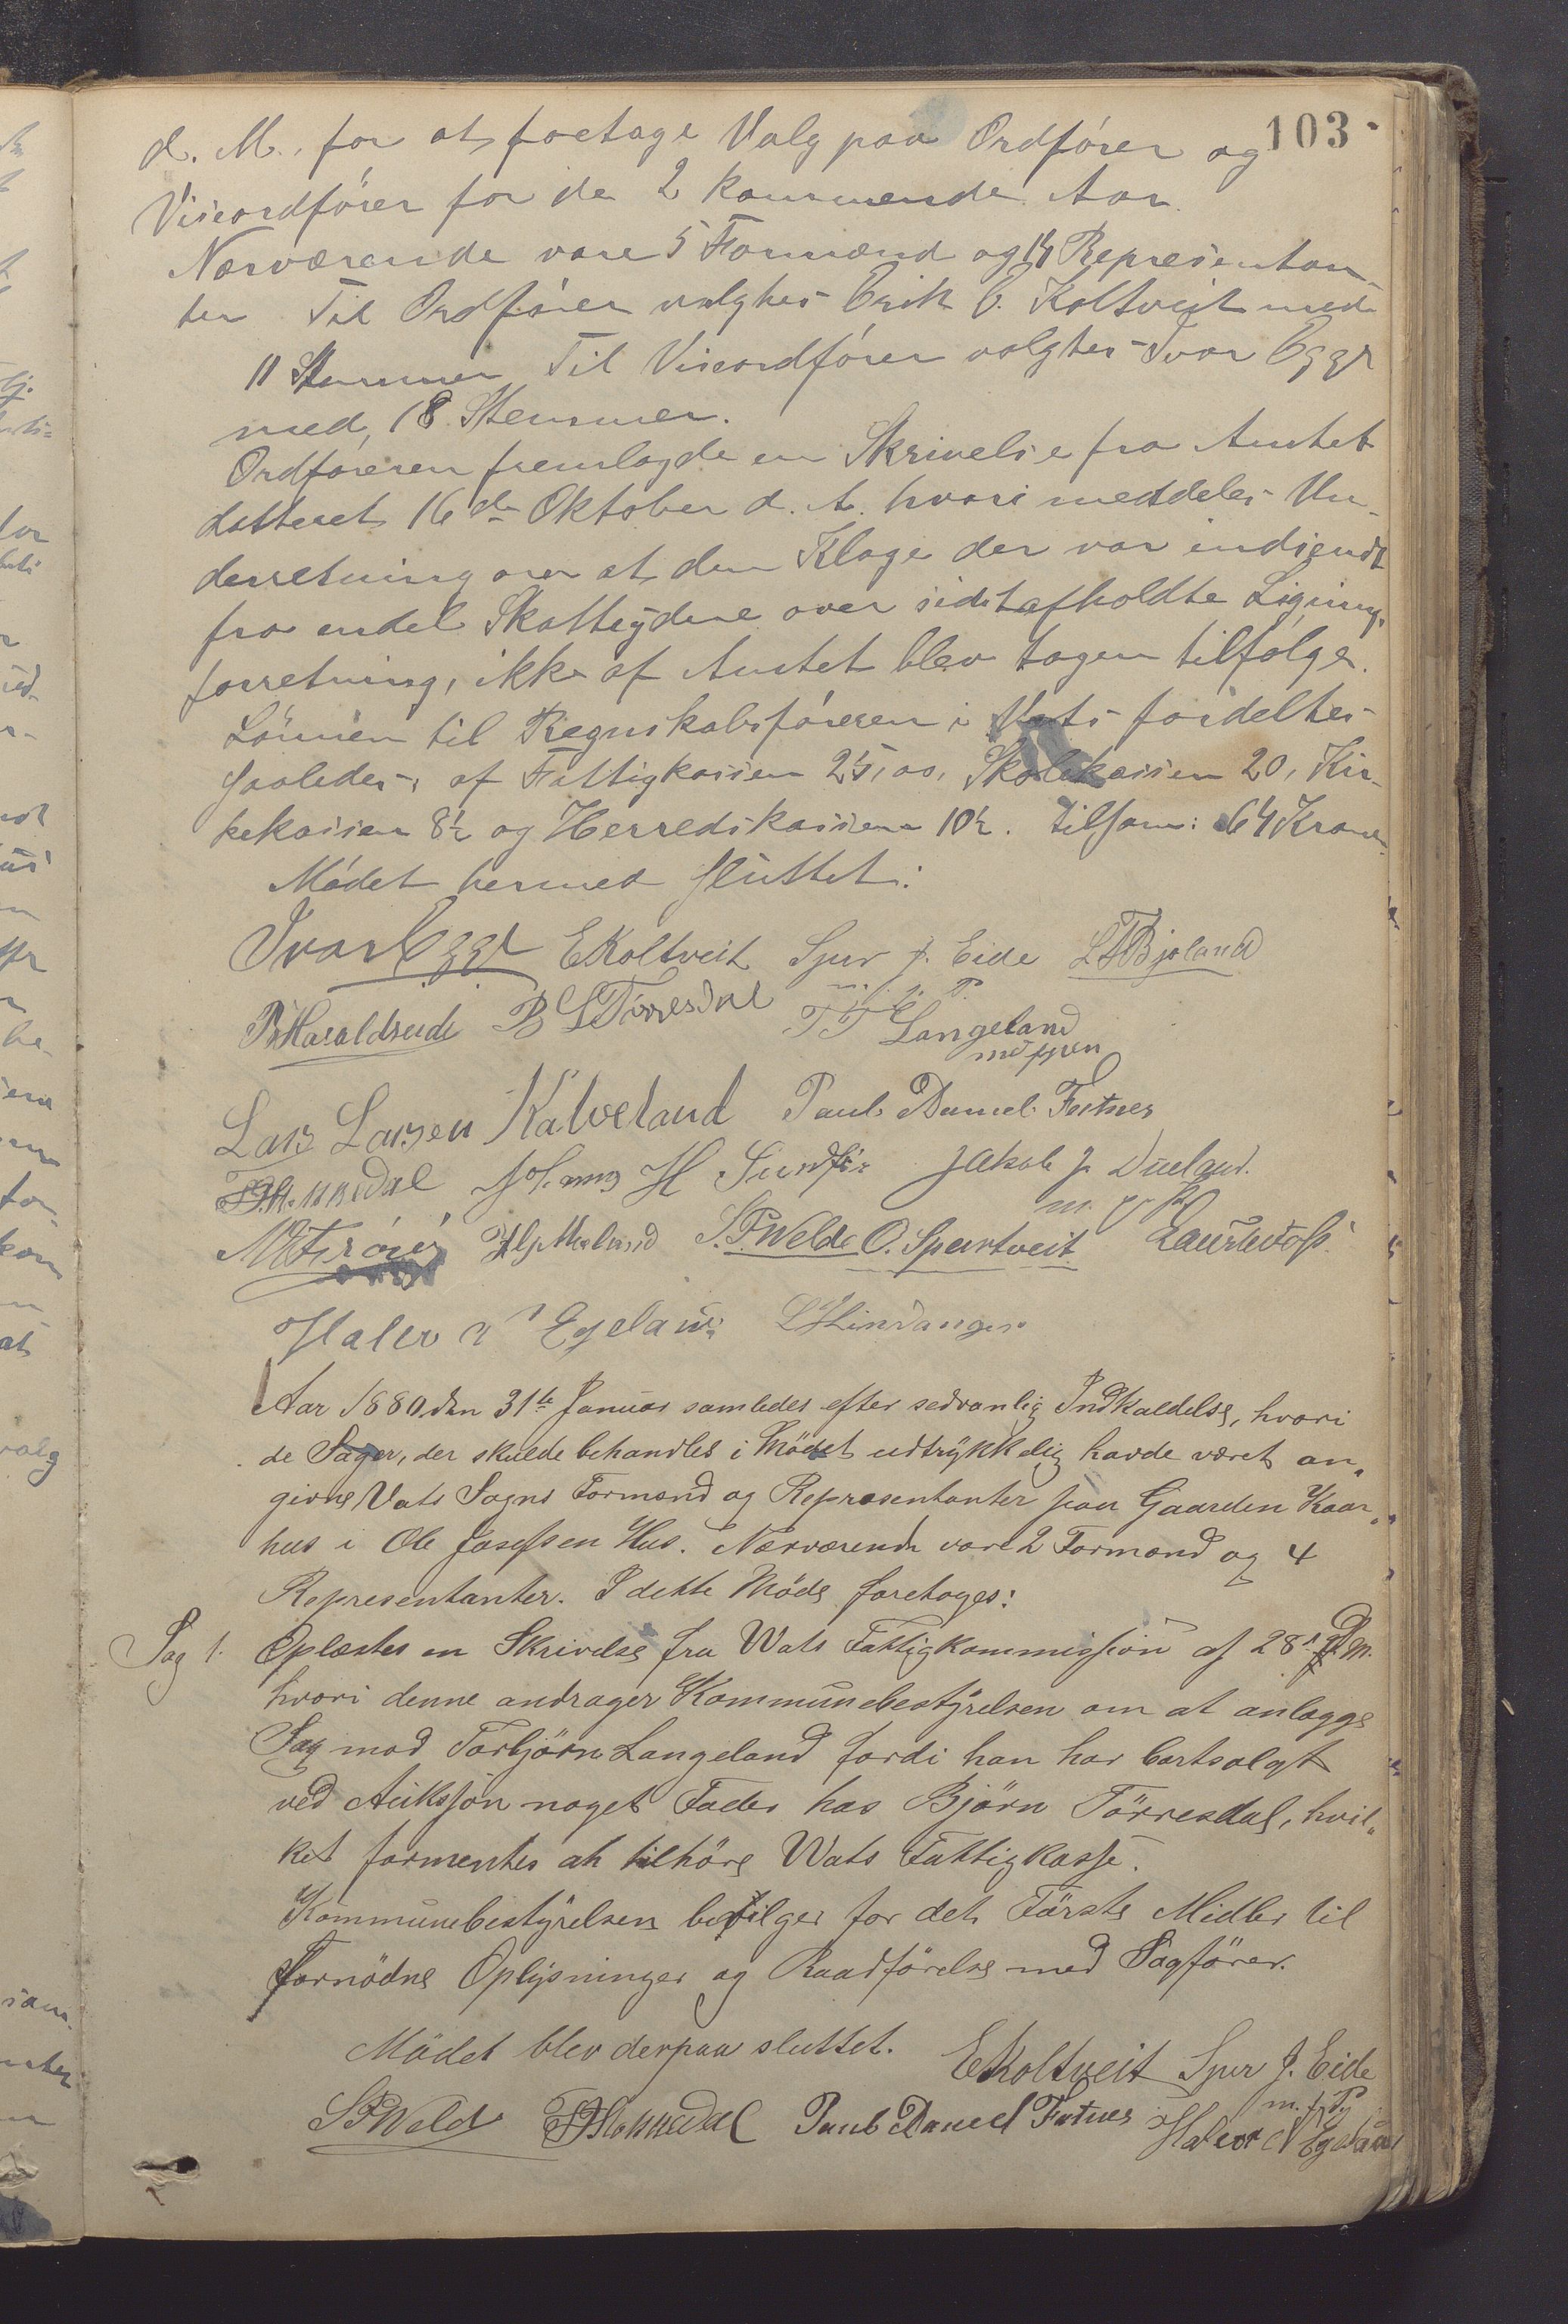 103
d. M. for at foetage Valg paa Ordfører og
Viseordfører for de 2 kommende Aar.
Nærværende vare 5 Formænd og 14 Represientan-
ter Til Ordfører valgtes Erik E. Koltveit med
11 Stemmer Til Viseordfører valgtes Ivar Egge
med 18 Stemmer.
Ordføreren fremlagde en Skrivelse fra Amtet
datteret 16de Oktober d. A. hvori meddeles Un-
derretning om at den Klage der var indsendt
fra endel Skatteydere over sidstafholdte Lignings-
forretning, ikke af Amtet blev tagen tilfølge.
Lønnen til Regnskabsføreren i Vats fordeltes
saaledes, af Fattigkassen 25,00, Skolekassen 20, Kir-
kekassen 8½ og Herredskassen 10½. tilsam: 64 Kroner
Mødet hermed sluttet:
Ivar Egge EKoltveit Sjur J. Eide LTBjoland
m. f. P.
P.Haraldseide B LTørresdal T T Langeland
med pen
Lars Larsen Kalveland Paul Daniel Fatnes
Johannes H Sundfør Jakob J. Dueland.
m. p. P.
S.P.Welde O. Spertveit
Halvor N Egeland LHLindanger
Aar 1880 den 31te Januar samledes efter sedvanlig Indkaldelse, hvori
de Sager, der skulde behandles i Mødet udtrykkelig havde været an„
givne Vats Sogns Formænd og Repræsentanter paa Gaarden Kaar„
hus i Ole Josefsen Hus. Nærværende vare 2 Formænd og 4
Representanter. I dette Møde foretoges:
Sag 1. Oplæstes en Skrivelse fra Wats Fattigkommission af 28s D. M.
hvori denne andrager Kommunebestyrelsen om at anlægge
Sag mod Torbjørn Langeland fordi han har bortsolgt
ved Auksjon noget Foder hos Bjørn Tørresdal, hvil„
ket formentes at tilhøre Wats Fattigkasse.
Kommunebestyrelsen bevilger for det Første Midler til
Fornødne Oplysninger og Raadførelse med Sagfører.
Mødet blev derpaa sluttet. EKoltveit Sjur J. Eide
m. f. P.
SPWelde Paul Daniel Fatnes Halvor N Egeland